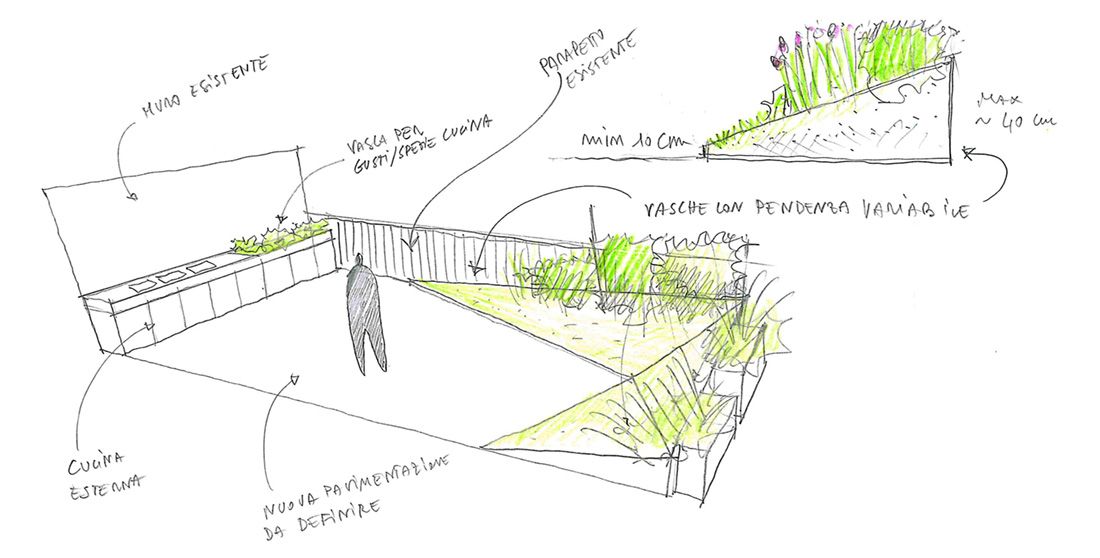 MURO ESISTENTE
PARAPETTO
ESISTENTE
VASCA PER
GUSTI/SPEZIE CUCINA
min 10 cm
MAX
~ 40 cm
VASCHE CON PENDENZA VARIABILE
CUCINA
ESTERNA
NUOVA PAVIMENTAZIONE
DA DEFINIRE